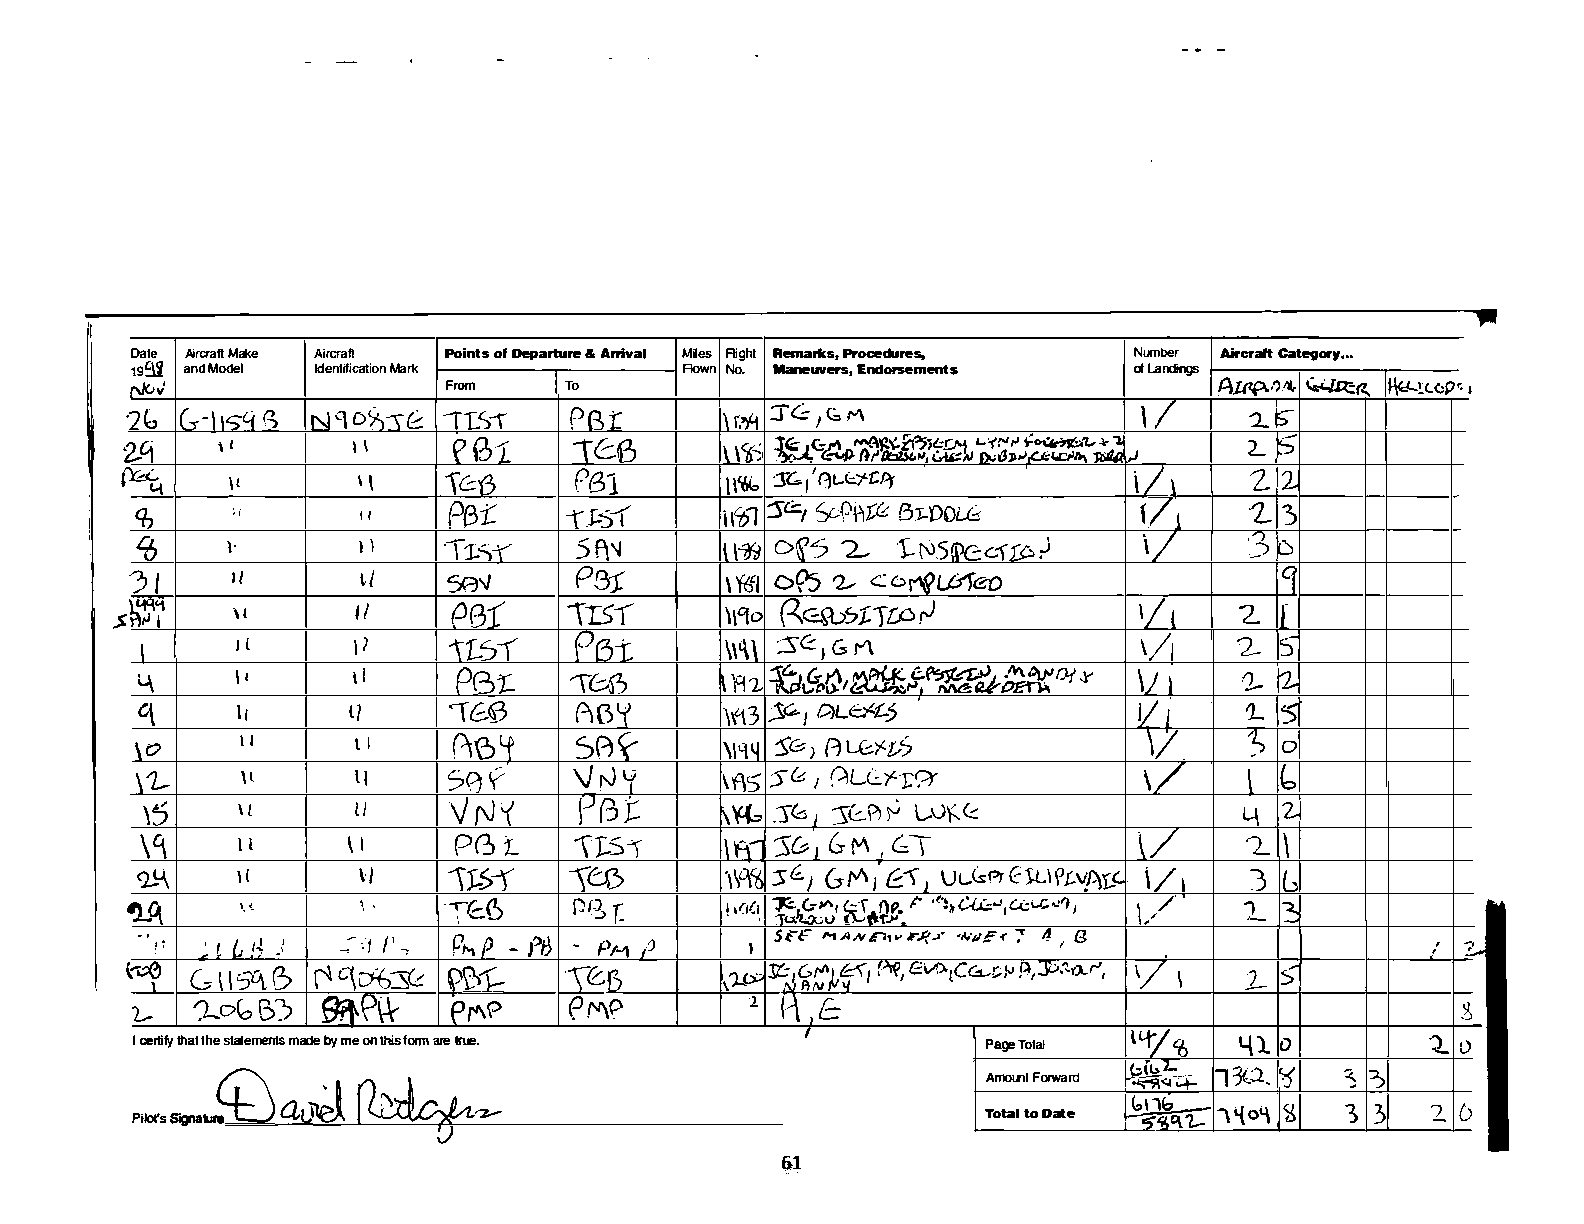 Date Aircraft Make Aircraft Points of Departure & Arrival Miles Flight Remarks, Procedures, Number Aircraft Category...
1998 and Model Identification Mark Flown No. Maneuvers, Endorsements of Landings
NOV From To AIRPLAN GLIDER HELICOPT
26 G-1159B N908JE TIST PBI 1184 JE, GM 1/ 2 5
29 " " PBI TEB 1185 JE, GM, MARK EPSTEIN, LYNN FORESTER + 2 2 5
EVA ANDERSON, GLEN DUBIN, CELINA, JORDAN
DEC
4 " " TEB PBI 1186 JE, ALEXIA 1/1 2 2
8 " " PBI TIST 1187 JE, SOPHIE BIDDLE 1/1 2 3
8 " " TIST SAV 1188 OPS 2 INSPECTION 1/ 3 0
31 " " SAV PBI 1189 OPS 2 COMPLETED 9
1999
JAN 1 " " PBI TIST 1190 REPOSITION 1/1 2 1
1 " " TIST PBI 1191 JE, GM 1/1 2 5
4 " " PBI TEB 1192 JE, GM, MARK EPSTEIN, MANDY & 1/1 2 2
9 " " TEB ABY 1193 JE, ALEXIS 1/1 2 5
10 " " ABY SAF 1194 JE, ALEXIS 1/ 3 0
12 " " SAF VNY 1195 JE, ALEXIA 1/ 1 6
15 " " VNY PBI 1196 JE, JEAN LUKE 4 2
19 " " PBI TIST 1197 JE, GM, ET 1/ 2 1
24 " " TIST TEB 1198 JE, GM, ET, 1/1 3 6
29 " " TEB PBI 1199 JE, GM, ET, AP, GLEN, CELINA, 1/ 2 3
PMP - PB - PMP 1 SEE MANEUVERS INDEX A, B 1 2
FEB
1 G1159B N908JE PBI TEB 1200 JE, GM, ET, AP, EVA, CELINA, JORDAN, 1/1 2 5
NANNY
2 206B3 PMP PMP 2 A, E 8
I certify that the statements made by me on this form are true. Page Total 14/8 42 0 2 0
Amount Forward 6162 7362. 8 3 3
Pilot's Signature David Rodgers Total to Date 6176 5892 7404 8 3 3 2 0
61